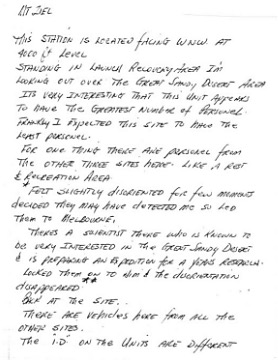 MT ZIEL
THIS STATION IS LOCATED FACING W.N.W. AT
4000 ft LEVEL
STANDING IN LAUNCH RECOVERY AREA I'M
LOOKING OUT OVER THE GREAT SANDY DESERT AREA
ITS VERY INTERESTING THAT THIS UNIT APPEARS
TO HAVE THE GREATEST NUMBER OF PERSONEL.
FRANKLY I EXPECTED THIS SITE TO HAVE THE
LEAST PERSONEL.
FOR ONE THING THERE ARE PERSONEL FROM
THE OTHER THREE SITES HERE. LIKE A REST
& RECREATION AREA
* FELT SLIGHTLY DISORIENTED FOR FEW MOMENTS
DECIDED THEY MAY HAVE DETECTED ME SO LED
THEM TO MELBOURNE.
THERES A SCIENTIST THERE WHO IS KNOWN TO
BE VERY INTERESTED IN THE GREAT SANDY DESERT
& IS PREPARING AN EXPEDITION FOR A YEARS RESEARCH.
LOCKED THEM ON TO HIM & THE DISORENTATION
DISAPPEARED **
BACK AT THE SITE..
THERE ARE VEHICLES HERE FROM ALL THE
OTHER SITES.
THE I.D. ON THE UNITS ARE DIFFERENT